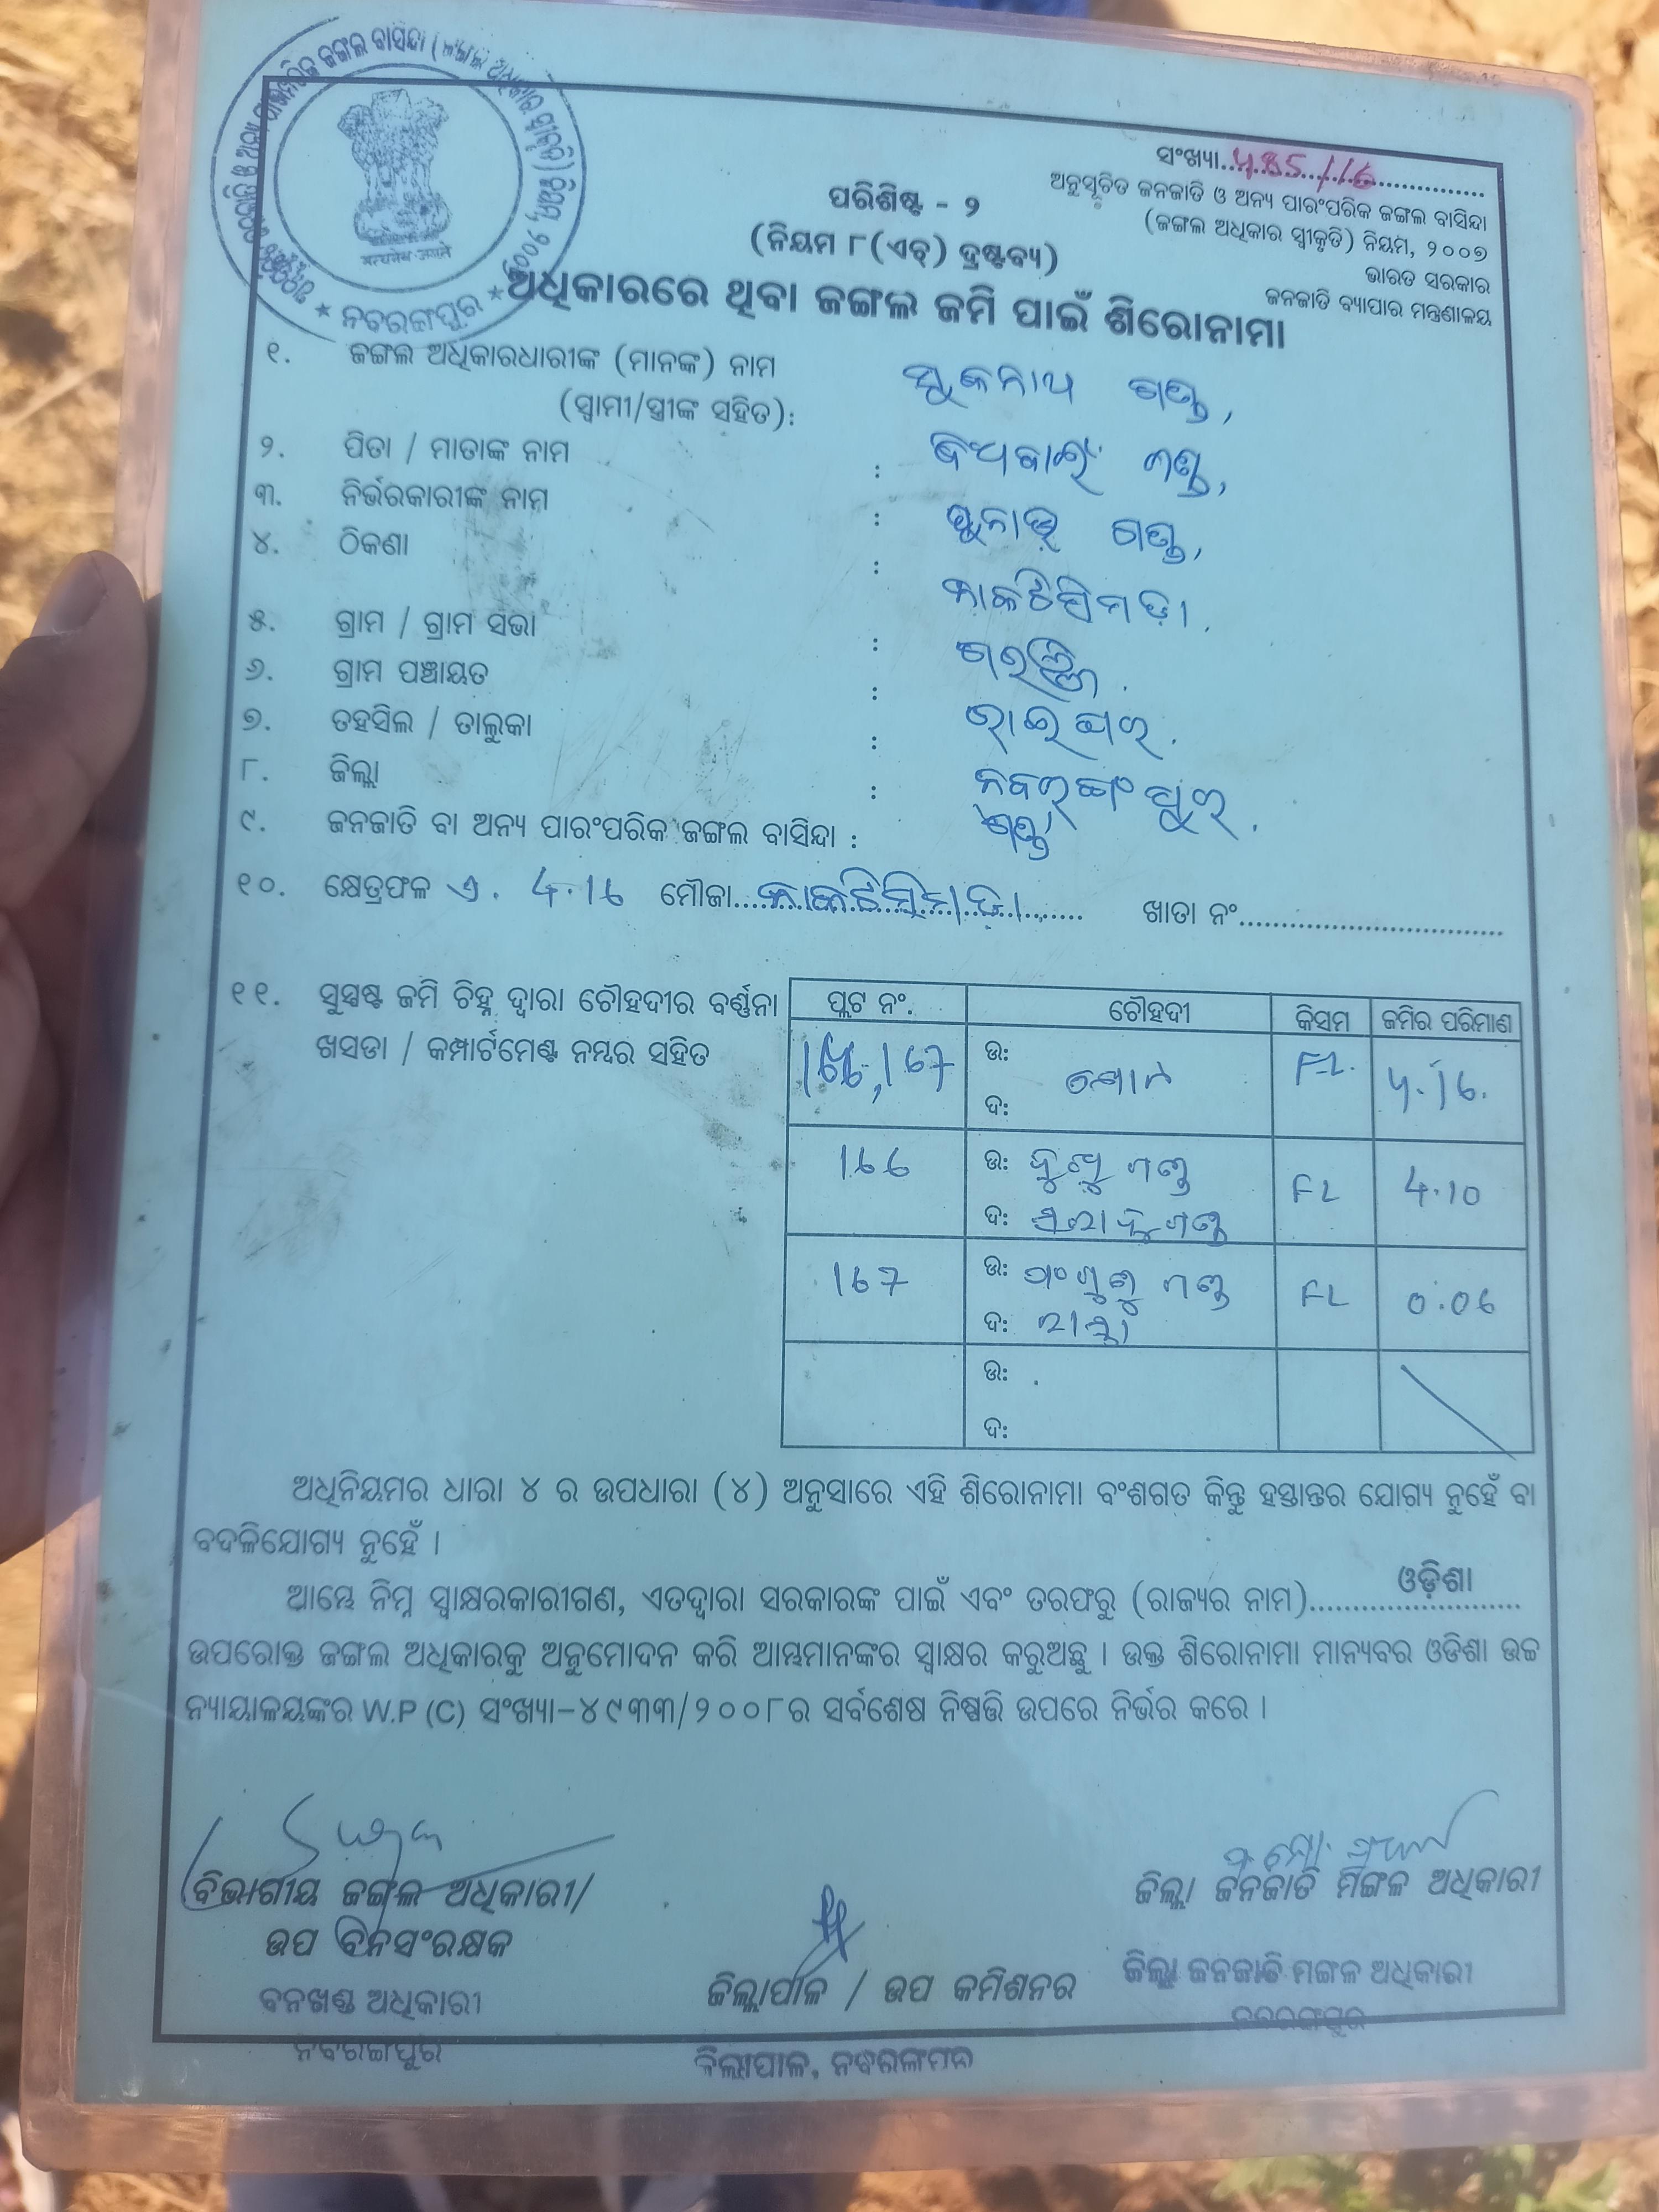 ସଂଖ୍ୟା
ଅନୁସୂଚିତ ଜନଜାତି ଓ ଅନ୍ୟ ପାରଂପରିକ ଜଙ୍ଗଲ ବାସିନ୍ଦା
(ଜଙ୍ଗଲ ଅଧିକାର ସ୍ୱୀକୃତି) ନିୟମ, ୨୦୦୭
ଭାରତ ସରକାର
ଜନଜାତି ବ୍ୟାପାର ମନ୍ତ୍ରଣାଳୟ
ପରିଶିଷ୍ଟ - ୨
(ନିୟମ ୮(ଏଚ୍) ଦ୍ରଷ୍ଟବ୍ୟ)
ଅଧିକାରରେ ଥିବା ଜଙ୍ଗଲ ଜମି ପାଇଁ ଶିରୋନାମା
ନବରଙ୍ଗପୁର
୧. ଜଙ୍ଗଲ ଅଧିକାରଧାରୀଙ୍କ (ମାନଙ୍କ) ନାମ
(ସ୍ୱାମୀ/ସ୍ତ୍ରୀଙ୍କ ସହିତ): ସୁକନାଥ ଗଣ୍ଡ,
୨. ପିତା / ମାତାଙ୍କ ନାମ : ଗଣ୍ଡ,
୩. ନିର୍ଭରକାରୀଙ୍କ ନାମ : ଗଣ୍ଡ,
୪. ଠିକଣା :
୫. ଗ୍ରାମ / ଗ୍ରାମ ସଭା :
୬. ଗ୍ରାମ ପଞ୍ଚାୟତ :
୭. ତହସିଲ / ତାଲୁକା : ରାଇଘର.
୮. ଜିଲ୍ଲା : ନବରଙ୍ଗପୁର.
୯. ଜନଜାତି ବା ଅନ୍ୟ ପାରଂପରିକ ଜଙ୍ଗଲ ବାସିନ୍ଦା : ଗଣ୍ଡ
୧୦. କ୍ଷେତ୍ରଫଳ ଏ. 4.16 ମୌଜା ଖାତା ନଂ
୧୧. ସୁସ୍ପଷ୍ଟ ଜମି ଚିହ୍ନ ଦ୍ୱାରା ଚୌହଦୀର ବର୍ଣ୍ଣନା
ଖସଡା / କମ୍ପାର୍ଟମେଣ୍ଟ ନମ୍ବର ସହିତ
ପ୍ଲଟ ନଂ. ଚୌହଦୀ କିସମ ଜମିର ପରିମାଣ
166, 167 ଉ: FL. 4.16.
ଦ:
166 ଉ: ଗଣ୍ଡ FL 4.10
ଦ: ଗଣ୍ଡ
167 ଉ: ଗଣ୍ଡ FL 0.06
ଦ:
ଉ:
ଦ:
ଅଧିନିୟମର ଧାରା ୪ ର ଉପଧାରା (୪) ଅନୁସାରେ ଏହି ଶିରୋନାମା ବଂଶଗତ କିନ୍ତୁ ହସ୍ତାନ୍ତର ଯୋଗ୍ୟ ନୁହେଁ ବା
ବଦଳିଯୋଗ୍ୟ ନୁହେଁ ।
ଆମ୍ଭେ ନିମ୍ନ ସ୍ୱାକ୍ଷରକାରୀଗଣ, ଏତଦ୍ୱାରା ସରକାରଙ୍କ ପାଇଁ ଏବଂ ତରଫରୁ (ରାଜ୍ୟର ନାମ) ଓଡ଼ିଶା
ଉପରୋକ୍ତ ଜଙ୍ଗଲ ଅଧିକାରକୁ ଅନୁମୋଦନ କରି ଆମ୍ଭମାନଙ୍କର ସ୍ୱାକ୍ଷର କରୁଅଛୁ । ଉକ୍ତ ଶିରୋନାମା ମାନ୍ୟବର ଓଡିଶା ଉଚ୍ଚ
ନ୍ୟାୟାଳୟଙ୍କର W.P (C) ସଂଖ୍ୟା-୪୯୩୩/୨୦୦୮ର ସର୍ବଶେଷ ନିଷ୍ପତ୍ତି ଉପରେ ନିର୍ଭର କରେ ।
ବିଭାଗୀୟ ଜଙ୍ଗଲ ଅଧିକାରୀ/
ଉପ ବନସଂରକ୍ଷକ
ବନଖଣ୍ଡ ଅଧିକାରୀ
ନବରଙ୍ଗପୁର
ଜିଲ୍ଲାପାଳ / ଉପ କମିଶନର
ଜିଲ୍ଲାପାଳ, ନବରଙ୍ଗପୁର
ଜିଲ୍ଲା ଜନଜାତି ମଙ୍ଗଳ ଅଧିକାରୀ
ଜିଲ୍ଲା ଜନଜାତି ମଙ୍ଗଳ ଅଧିକାରୀ
ନବରଙ୍ଗପୁର